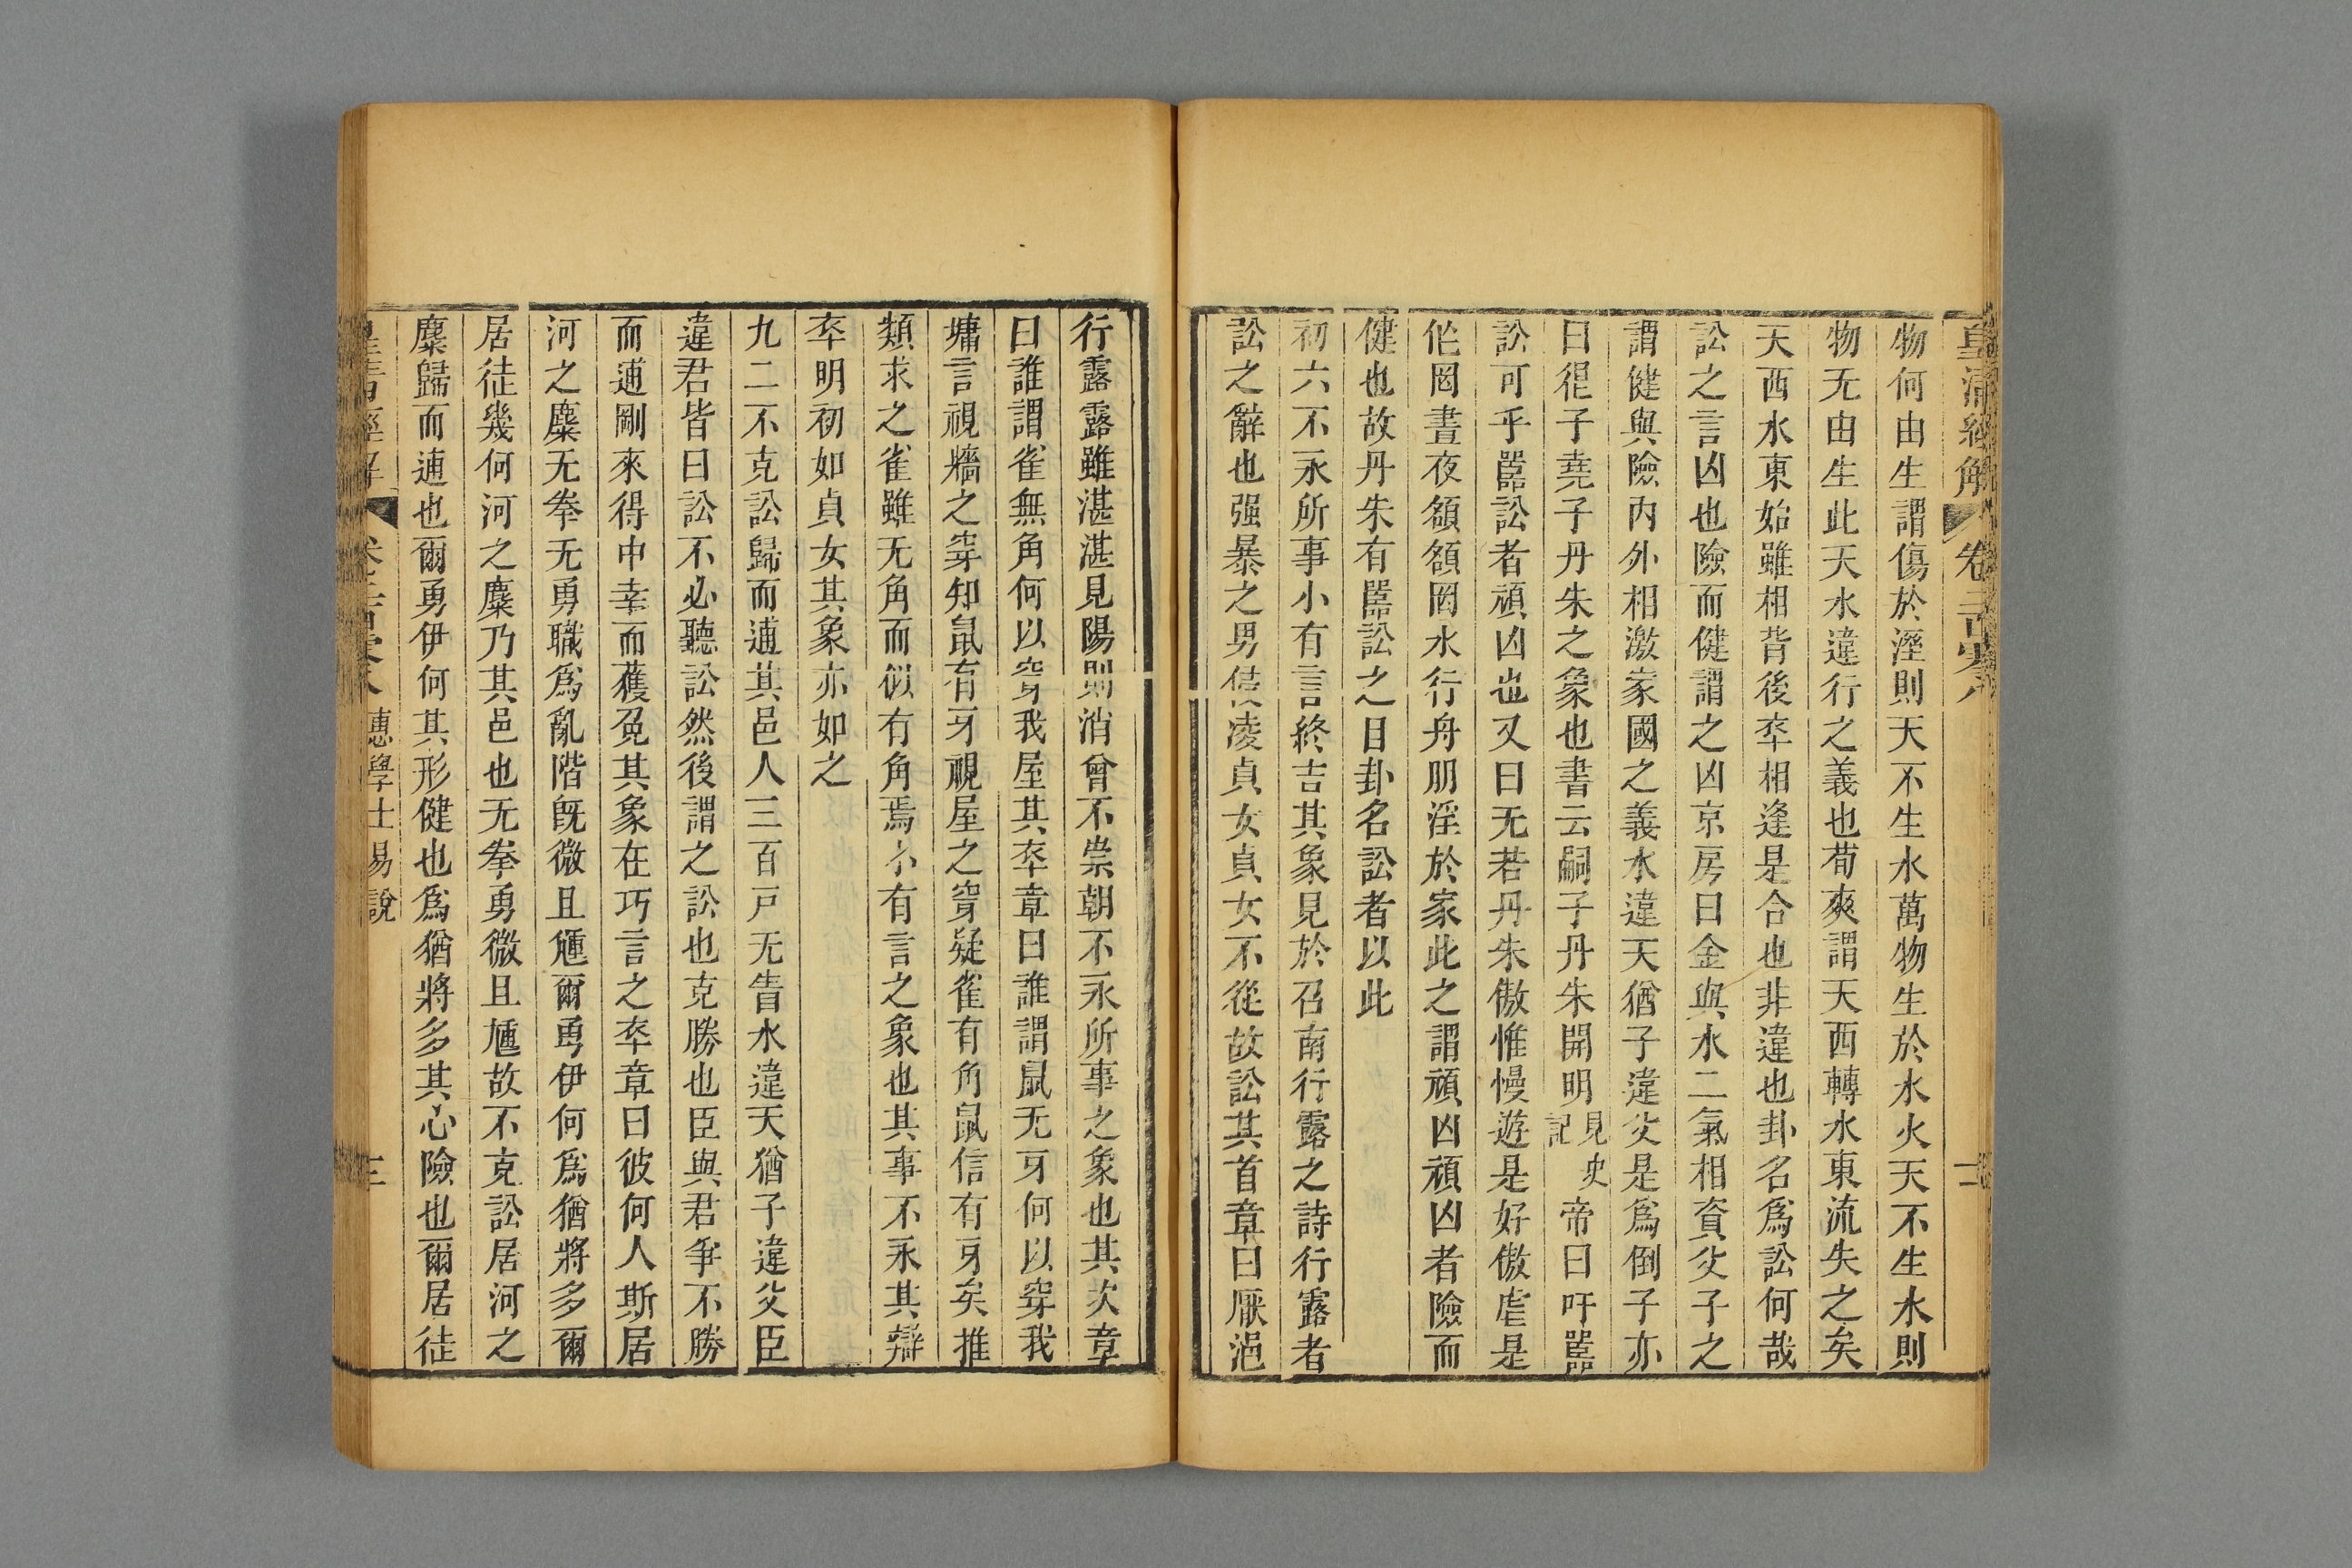 皇清經解 卷二百八 二
物何由生謂傷於溼則天不生水萬物生於水火天不生水則
物无由生此天水違行之義也荀爽謂天西轉水東流失之矣
天西水東始雖相背後卒相逢是合也非違也卦名爲訟何哉
訟之言凶也險而健謂之凶京房曰金與水二氣相資父子之
謂健與險內外相激家國之義水違天猶子違父是爲倒子亦
曰很子堯子丹朱之象也書云嗣子丹朱開明見史記帝曰吁嚚
訟可乎嚚訟者頑凶也又曰无若丹朱傲惟慢遊是好傲虐是
作罔晝夜頟頟罔水行舟朋淫於家此之謂頑凶頑凶者險而
健也故丹朱有嚚訟之目卦名訟者以此
初六不永所事小有言終吉其象見於召南行露之詩行露者
訟之辭也强暴之男侵凌貞女貞女不從故訟其首章曰厭浥
行露露雖湛湛見陽則消曾不崇朝不永所事之象也其次章
曰誰謂雀無角何以穿我屋其卒章曰誰謂鼠无牙何以穿我
墉言視牆之穿知鼠有牙視屋之穿疑雀有角鼠信有牙矣推
類求之雀雖无角而似有角焉小有言之象也其事不永其辯
卒明初如貞女其象亦如之
九二不克訟歸而逋其邑人三百戸无眚水違天猶子違父臣
違君皆曰訟不必聽訟然後謂之訟也克勝也臣與君爭不勝
而逋剛來得中幸而獲免其象在巧言之卒章曰彼何人斯居
河之麋无拳无勇職爲亂階旣微且尰爾勇伊何爲猶將多爾
居徒幾何河之麋乃其邑也无拳勇微且尰故不克訟居河之
麋歸而逋也爾勇伊何其形健也爲猶將多其心險也爾居徒
惠學士易說 三